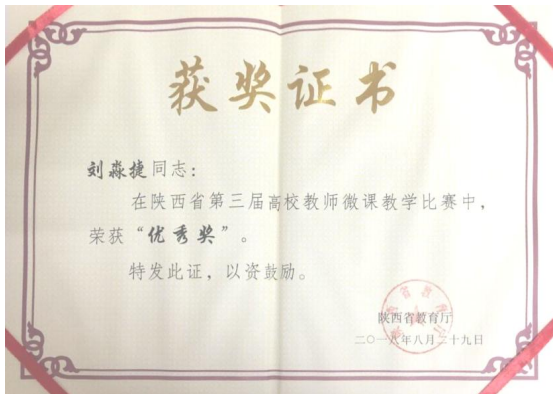 获奖证书
刘淼捷同志：
在陕西省第三届高校教师微课教学比赛中，
荣获“优秀奖”。
特发此证，以资鼓励。
陕西省教育厅
二〇一八年八月二十九日